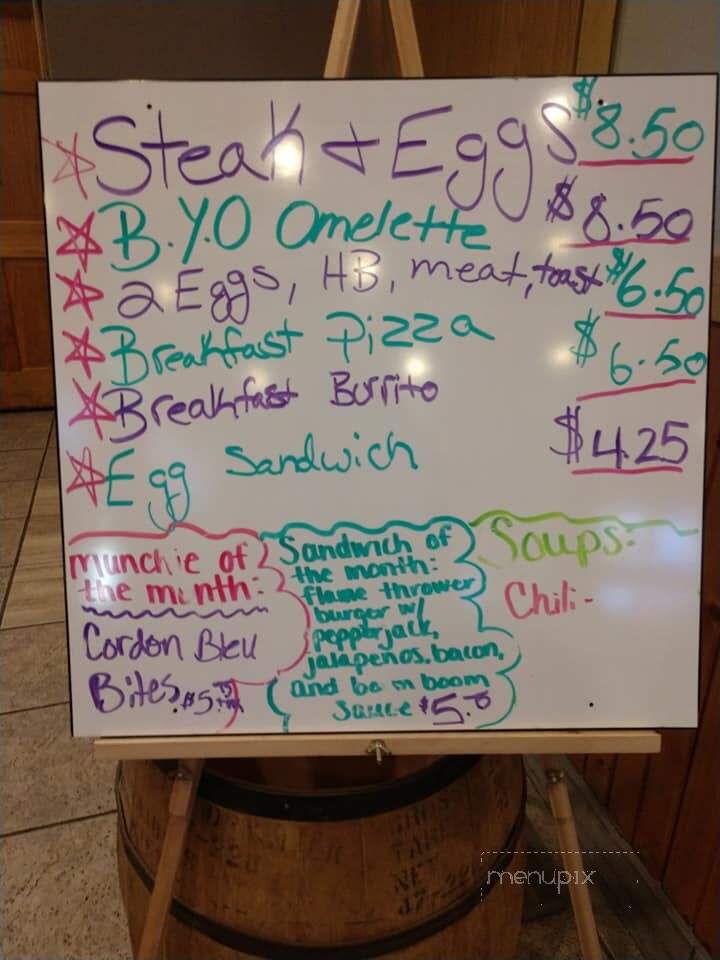 Steak + Eggs $8.50
B.Y.O Omelette $8.50
2 Eggs, HB, meat, toast $6.50
Breakfast Pizza $6.50
Breakfast Burrito
Egg Sandwich $4.25
munchie of
the month:
Cordon Bleu
Bites
Sandwich of
the month:
flame thrower
burger w/
pepperjack,
jalapeños, bacon,
and boom boom
sauce
Soups:
Chili-
menupix